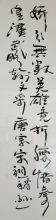 嬌引無數英雄竞折腰惜秦
皇漢武略輸文采唐宗宋祖稍遜